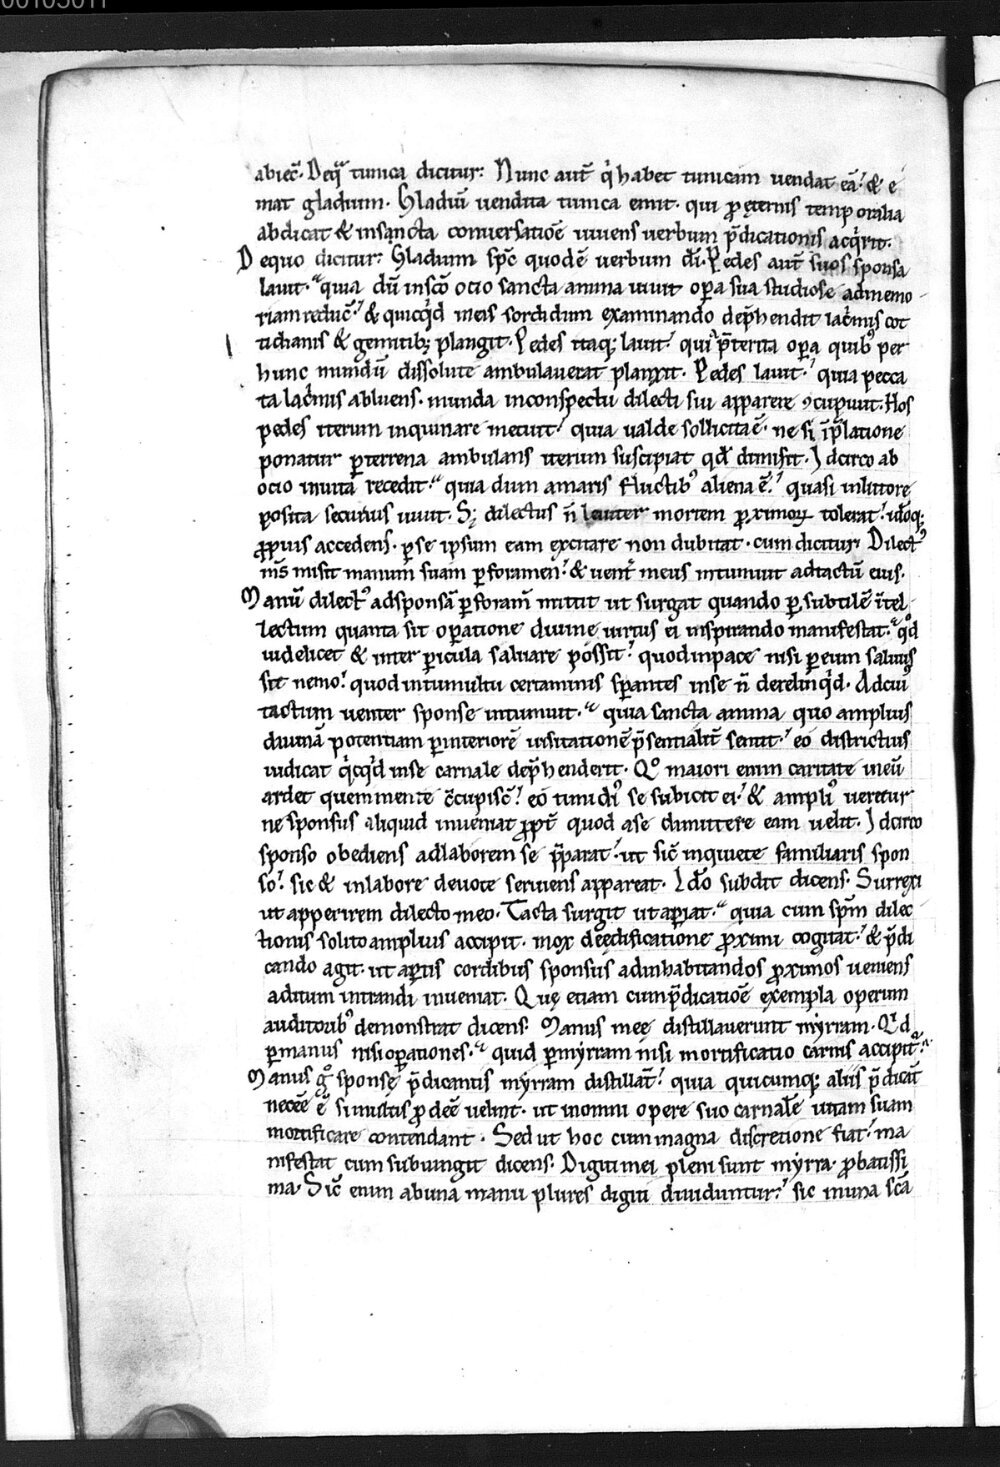 abiec̄. Deq̄ tunica dicitur: Nunc aut̄ q̇ habet tunicam uendat eā: & e
mat gladium. Gladiū uendita tunica emit. qui ꝓ ęternis temporalia
abdicat & insancta conuersatiōe uiuens uerbum p̄dicationis acq̇rit.
Dequo dicitur: Gladium sp̄c quodē uerbum dī. Pedes aut̄ suos sponsa
lauit. quia dū insc̄o ocio sancta anima uiuit opera sua studiose admemo
riam reduc̄: & quicq̇d in eis sordidum examinando dep̄hendit lac̓mis cot
tidianis & gemitibꝫ plangit. Pedes itaqꝫ lauit: qui p̄terita opa quibꝰ per
hunc mundū dissolute ambulauerat planxit. Pedes lauit: quia pecca
ta lac̓mis abluens. munda inconspectu dilecti sui apparere ꝯcupiuit. Hos
pedes iterum inquinare metuit: quia ualde sollicita ē. ne si īp̄latione
ponatur ꝑterrena ambulans iterum suscipiat qd̄ dimisit. Idcirco ab
ocio inuita recedit. quia dum amaris fluctibꝰ aliena ē: quasi inlittore
posita securius uiuit. Sꝫ dilectus n̄ leuiter mortem ꝓximoꝝ tolerat: id̄oqꝫ
ꝓpius accedens. ꝑse ipsum eam excitare non dubitat. cum dicitur Dilectꝰ
ms̄ misit manum suam ꝑforamen: & uent̄ meus intumuit adtactū eius.
Manū dilectꝰ adsponsā ꝑforam̄ mittit ut surgat quando ꝑsubtilē intel
lectum quanta sit oꝑatione diuine uirtus ei inspirando manifestat. qd̄
uidelicet & inter ꝑicula saluare possit: quod inpace nisi ꝑeum saluus
sit nemo: quod intumultu certaminis sꝑantes inse n̄ derelinq̇d. Adcuiꝰ
tactum uenter sponse intumuit. quia sancta anima quo amplius
diuinā potentiam ꝑinteriorē uisitationē p̄sentialit̄ sentit: eo districtius
iudicat q̇cq̇d inse carnale dep̄henderit. Qo maiori enim caritate in eū
ardet quem mente c̄cupisc̄: eo timidiꝰ se subicit ei: & ampliꝰ ueretur
ne sponsus aliquid inueniat ꝓpt̄ quod ase dimittere eam uelit. Idcirco
sponso obediens adlaborem se p̄parat: ut sic̄ inquiete familiaris spon
so: sic & inlabore deuote seruiens appareat. Id̄o subdit dicens. Surrexi
ut apperirem dilecto meo. Tacta surgit ut aꝑiat. quia cum sp̄m dilec
tionis solito amplius accipit. mox deedificatione ꝓximi cogitat: & p̄di
cando agit. ut aꝑtis cordibus sponsus adinhabitandos ꝓximos ueniens
aditum intrandi inueniat. Quę etiam cump̄dicatiōe exempla operum
auditoribꝰ demonstrat dicens. Manus meę distillauerunt myrram. Qid
ꝑmanus nisi oꝑationes. quid ꝑmyrram nisi mortificatio carnis accipit̄:
Manus g̊ sponsę p̄dicantis myrram distillāt: quia quicumqꝫ aliis p̄dicāt
necēe ē si multis ꝓdeē uelint. ut inomni opere suo carnalē uitam suam
mortificare contendant. Sed ut hoc cum magna discretione fiat: ma
nifestat cum subiungit dicens. Digiti mei pleni sunt myrra ꝓbatissi
ma. Sic̄ enim abuna manu plures digiti diuiduntur: sic inuna scā